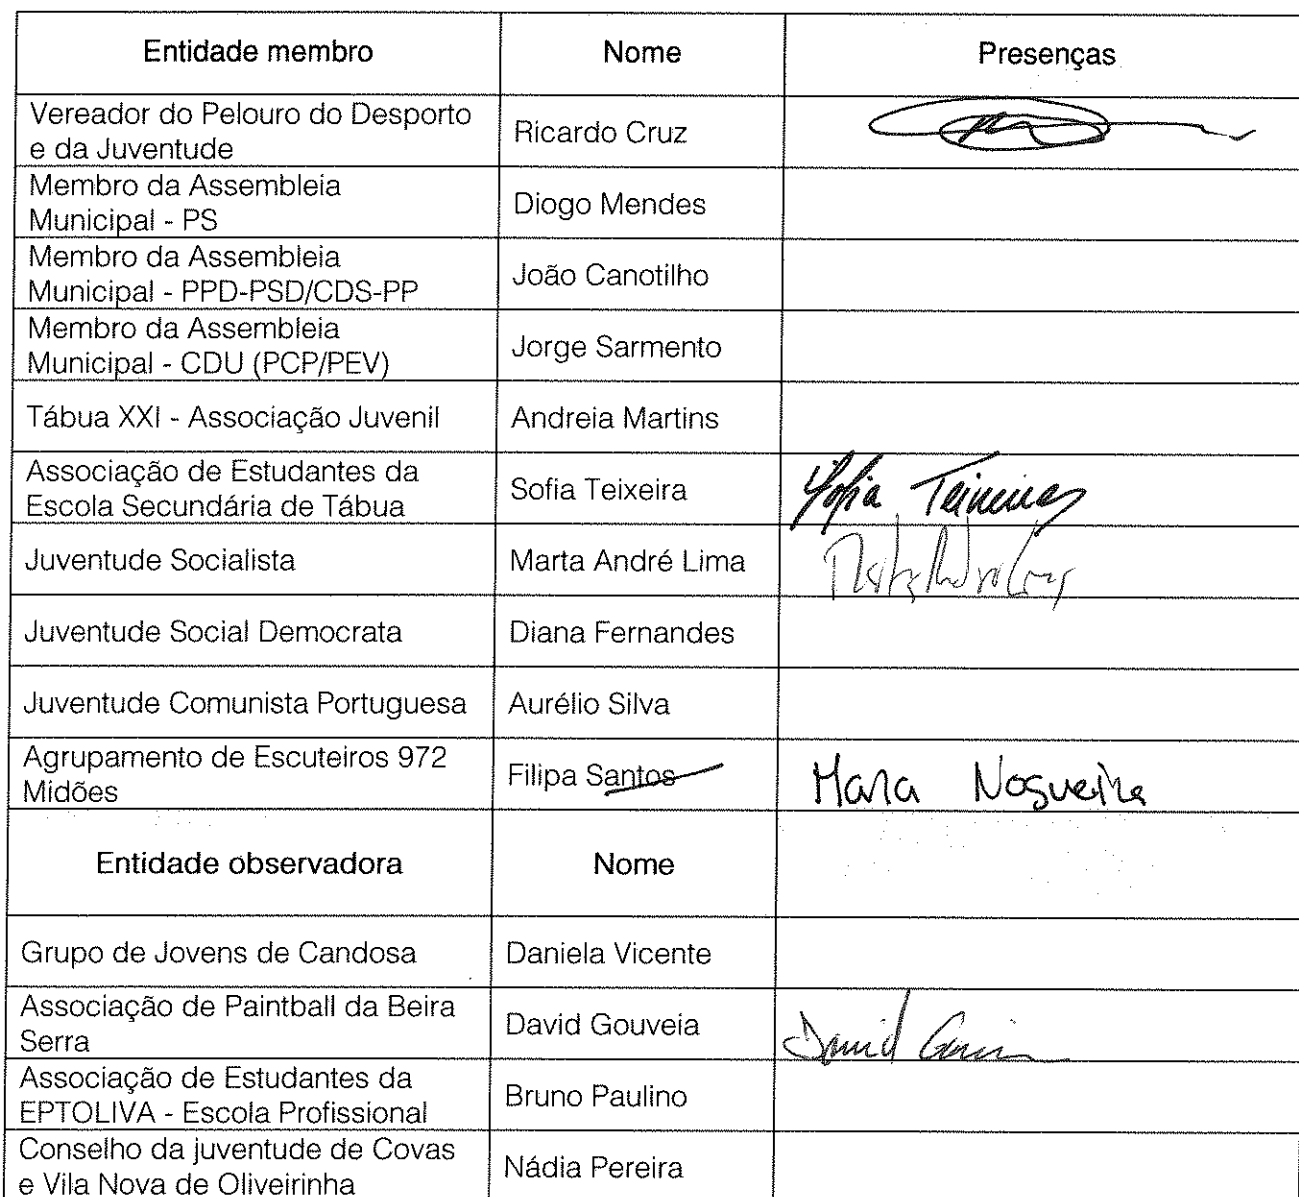 Entidade membro Nome Presenças
Vereador do Pelouro do Desporto
e da Juventude
Ricardo Cruz
Membro da Assembleia
Municipal - PS
Diogo Mendes
Membro da Assembleia
Municipal - PPD-PSD/CDS-PP
João Canotilho
Membro da Assembleia
Municipal - CDU (PCP/PEV)
Jorge Sarmento
Tábua XXI - Associação Juvenil Andreia Martins
Associação de Estudantes da
Escola Secundária de Tábua
Sofia Teixeira
Sofia Teixeira
Juventude Socialista Marta André Lima
Juventude Social Democrata Diana Fernandes
Juventude Comunista Portuguesa Aurélio Silva
Agrupamento de Escuteiros 972
Midões
Filipa Santos
Nogueira
Entidade observadora Nome
Grupo de Jovens de Candosa Daniela Vicente
Associação de Paintball da Beira
Serra
David Gouveia
David
Associação de Estudantes da
EPTOLIVA - Escola Profissional
Bruno Paulino
Conselho da juventude de Covas
e Vila Nova de Oliveirinha
Nádia Pereira